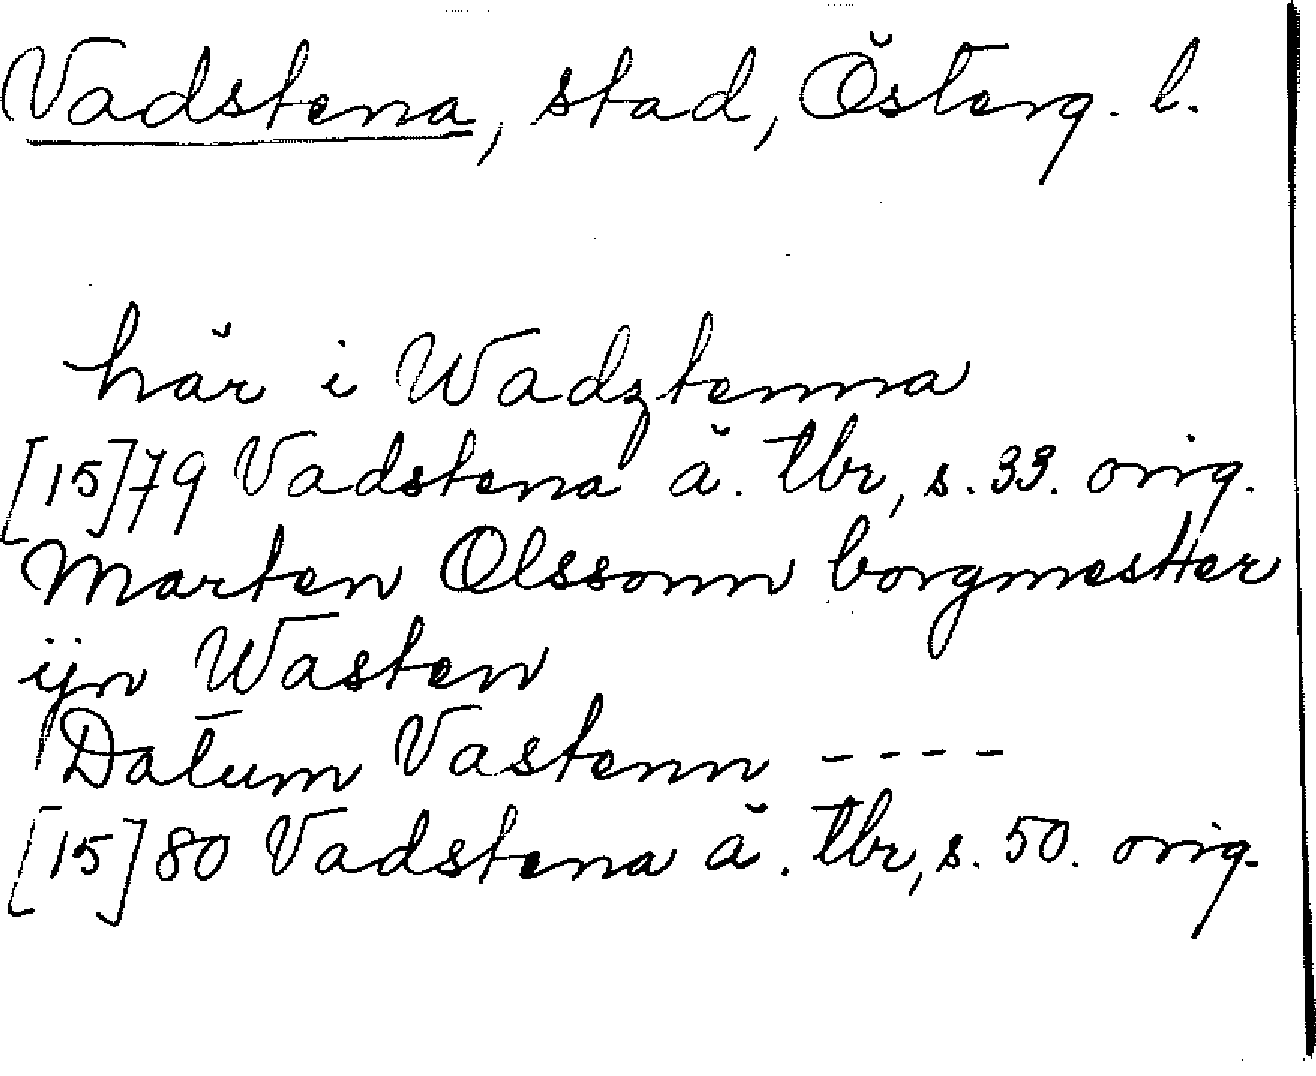 Vadstena, stad, Österg. l.
här i Wadztenna
[15]79 Vadstena ä. tbr, s. 33. orig.
Marten Olssonn borgmestter
ijn Wasten
Datum Vastenn ----
[15]80 Vadstena ä. tbr, s. 50. orig.